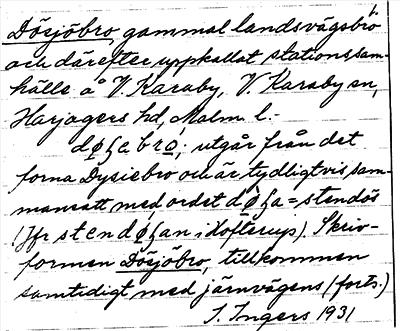 Dösjöbro, gammal landsvägsbro
och därefter uppkallat stationssam-
hälle å V. Karaby, V. Karaby sn,
Harjagers hd, Malm. l.
utgår från det
forna Dysiebro och är tydligtvis sam-
mansatt med ordet = stendös
(Jfr i Löfterup). Skriv-
formen Dösjöbro, tillkommen
samtidigt med järnvägens (forts.)
I. Ingers 1931